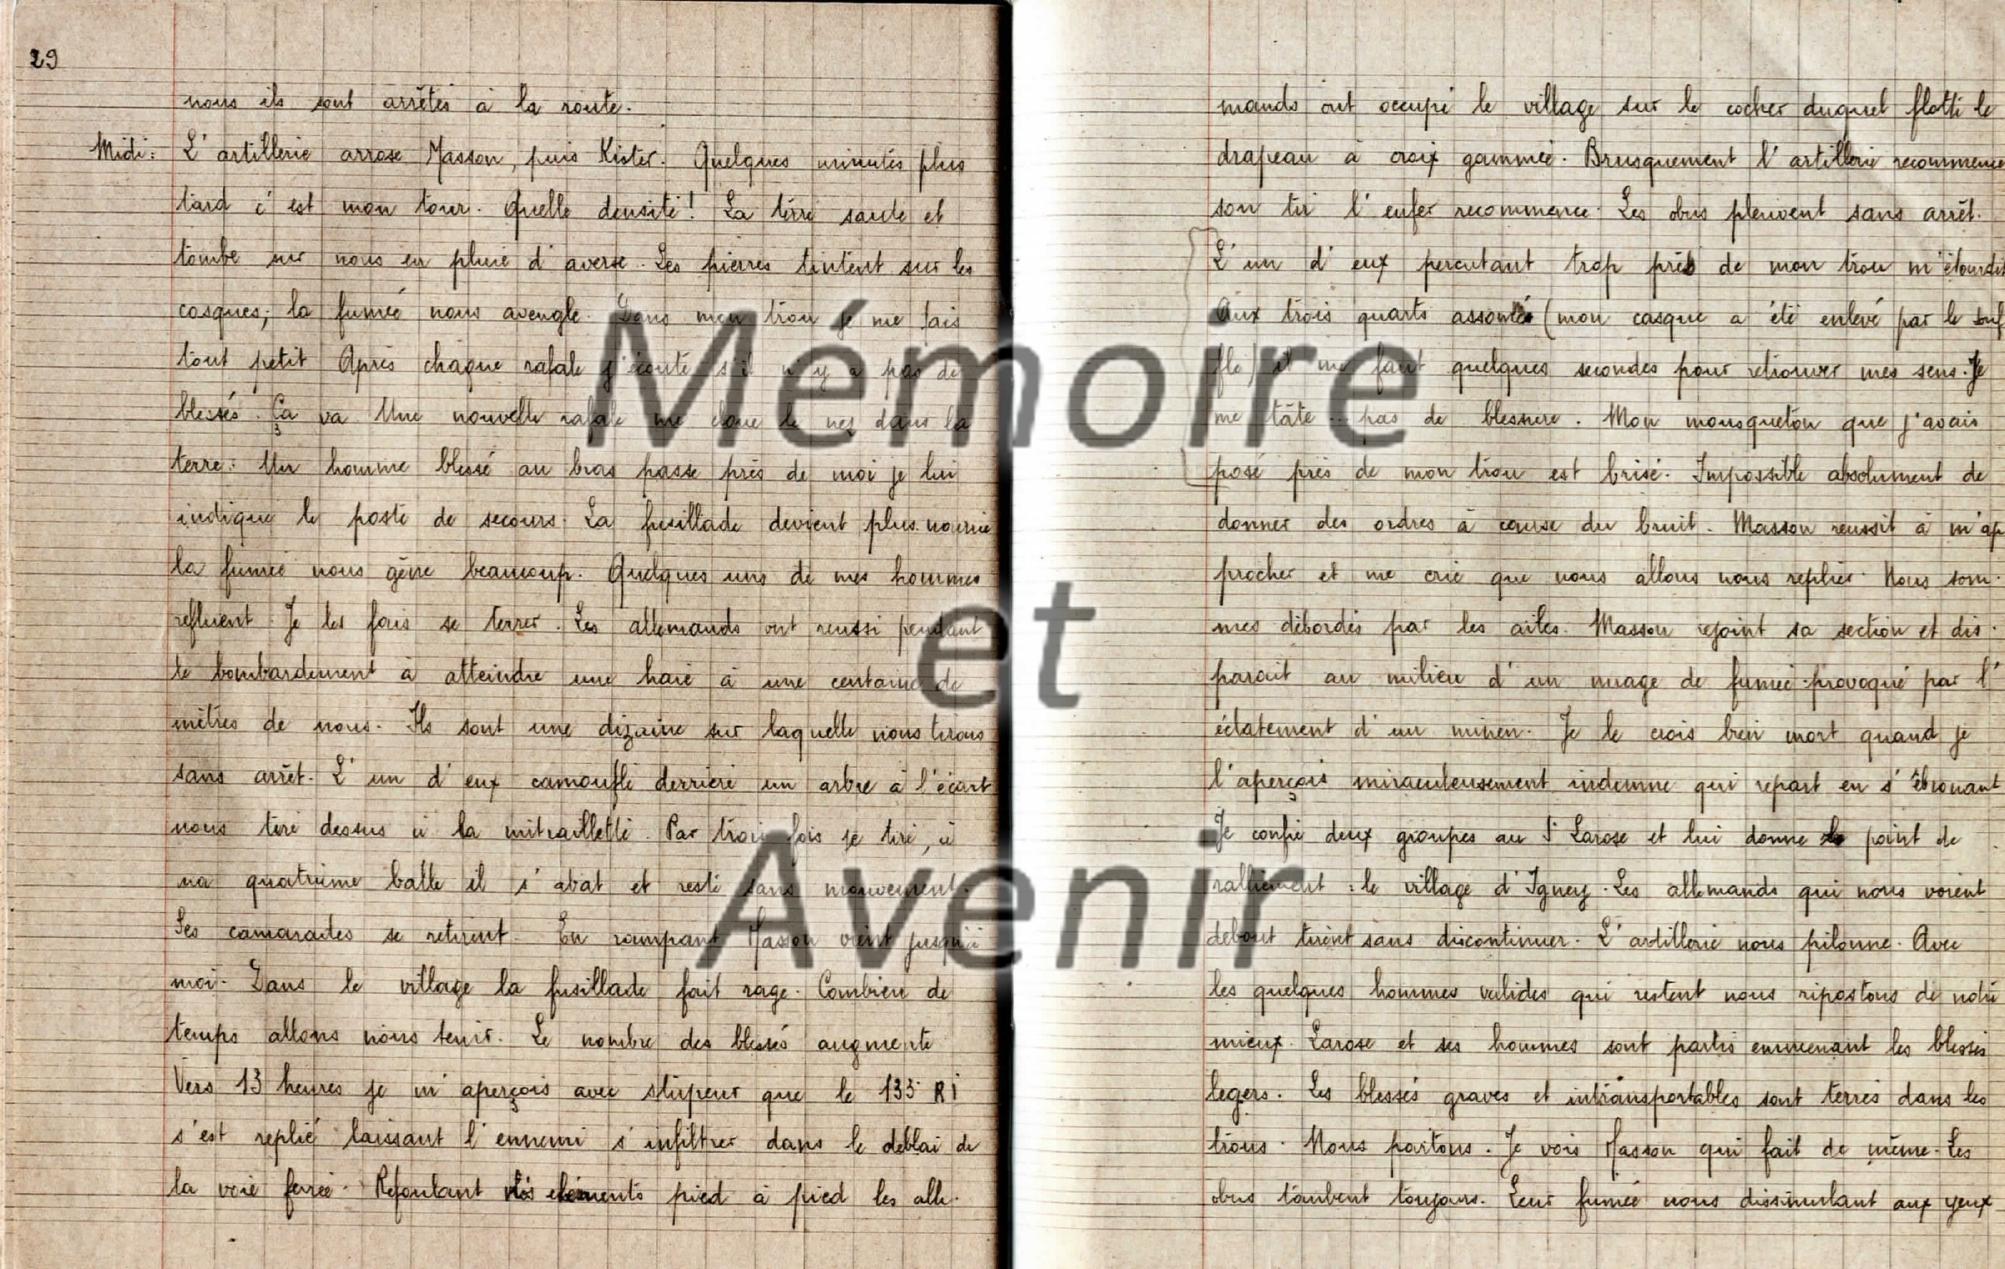 29
nous ils sont arrêtés à la route.
Midi: L'artillerie arrose Masson, puis Kister. Quelques minutes plus
tard c'est mon tour. Quelle densité! La terre saute et
tombe sur nous en pluie d'averse. Les pierres tintent sur les
casques; la fumée nous aveugle. Dans mon trou je me fais
tout petit Après chaque rafale j'écoute s'il n'y a pas de
blessés. Ça va Une nouvelle rafale me cloue le nez dans la
terre: Un homme blessé au bras passe près de moi je lui
indique le poste de secours. La fusillade devient plus nourrie
la fumée nous gêne beaucoup. Quelques uns de mes hommes
refluent. Je les fais se terrer. Les allemands ont reussi pendant
le bombardement à atteindre une haie à une centaine de
mètres de nous. Ils sont une dizaine sur laquelle nous tirons
sans arrêt. L'un d'eux camouflé derrière un arbre à l'écart
nous tire dessus à la mitraillette. Par trois fois je tire, à
ma quatrième balle il s'abat et reste sans mouvement.
Ses camarades se retirent. En rampant Masson vient jusqu'à
moi. Dans le village la fusillade fait rage. Combien de
temps allons nous tenir. Le nombre des blessés augmente
Vers 13 heures je m'aperçois avec stupeur que le 133 RI
s'est replié laissant l'ennemi s'infiltrer dans le déblai de
la voie ferrée. Refoulant les éléments pied à pied les alle-
mands ont occupé le village sur le cocher duquel flotte le
drapeau à croix gammée. Brusquement l'artillerie recommence
son tir l'enfer recommence. Les obus pleuvent sans arrêt.
L'un d'eux percutant trop près de mon trou m'étourdit
Aux trois quarts assomé (mon casque a été enlevé par le souf
fle) il me faut quelques secondes pour retrouver mes sens. Je
me tâte... pas de blessure. Mon mousqueton que j'avais
posé près de mon trou est brisé. Impossible absolument de
donner des ordres à cause du bruit. Masson reussit à m'ap
procher et me crie que nous allons nous replier. Nous som-
mes débordés par les ailes. Masson rejoint sa section et dis-
parait au milieu d'un nuage de fumée provoqué par l'
éclatement d'un minen. Je le crois bien mort quand je
l'aperçois miraculeusement indemne qui repart en s'ébrouant
Je confie deux groupes au St Larose et lui donne le point de
ralliement: le village d'Igney. Les allemands qui nous voient
debout tirent sans discontinuer. L'artillerie nous pilonne. Avec
les quelques hommes valides qui restent nous ripostons de notre
mieux. Larose et ses hommes sont partis emmenant les blessés
legers. Les blessés graves et intransportables sont terrés dans les
trous. Nous partons. Je vois Masson qui fait de même. Les
obus tombent toujours. Leur fumée nous dissimulant aux yeux
Mémoire
et
Avenir